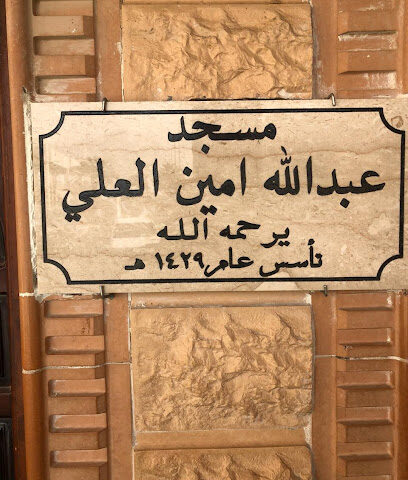 مسجد
عبدالله امين العلي
يرحمه الله
تأسس عام ١٤٢٩ هـ